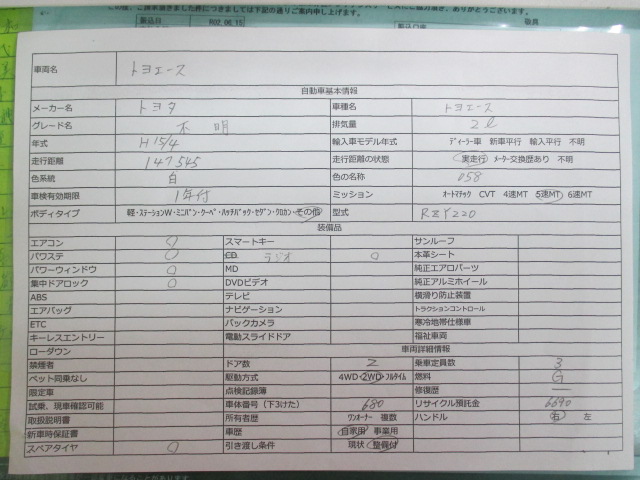 この度、ご請求頂きました件につきましては下記の通りご案内申し上げます。
敬具
振込日 R02.06.15 振込口座
車両名 トヨエース
自動車基本情報
メーカー名 トヨタ 車種名 トヨエース
グレード名 不明 排気量 2ℓ
年式 H15/4 輸入車モデル年式 ディーラー車 新車平行 輸入平行 不明
走行距離 147545 走行距離の状態 実走行 メーター交換歴あり 不明
色系統 白 色の名称 058
車検有効期限 1年付 ミッション オートマチック CVT 4速MT 5速MT 6速MT
ボディタイプ 軽・ステーションW・ミニバン・クーペ・ハッチバック・セダン・クロカン・その他 型式 RZY220
装備品
エアコン ○ スマートキー サンルーフ
パワステ ○ CD ラジオ ○ 本革シート
パワーウィンドウ ○ MD 純正エアロパーツ
集中ドアロック ○ DVDビデオ 純正アルミホイール
ABS テレビ 横滑り防止装置
エアバッグ ナビゲーション トラクションコントロール
ETC バックカメラ 寒冷地帯仕様車
キーレスエントリー 電動スライドドア 福祉車両
ローダウン 車両詳細情報
禁煙者 ドア数 2 乗車定員数 3
ペット同乗なし 駆動方式 4WD・2WD・フルタイム 燃料 G
限定車 点検記録簿 修復歴 —
試乗、現車確認可能 車体番号（下3けた） 680 リサイクル預託金 6690
取扱説明書 所有者歴 ワンオーナー 複数 ハンドル 右 左
新車時保証書 車歴 自家用 事業用
スペアタイヤ ○ 引き渡し条件 現状 整備付